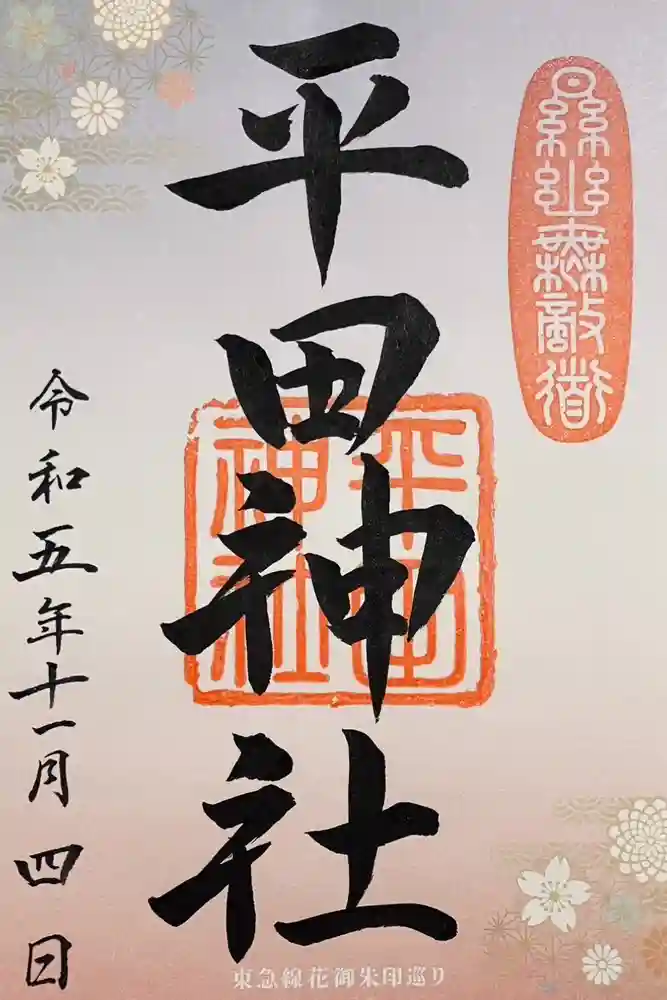 平田神社
平田
神社
令和五年十一月四日
東急線花御朱印巡り